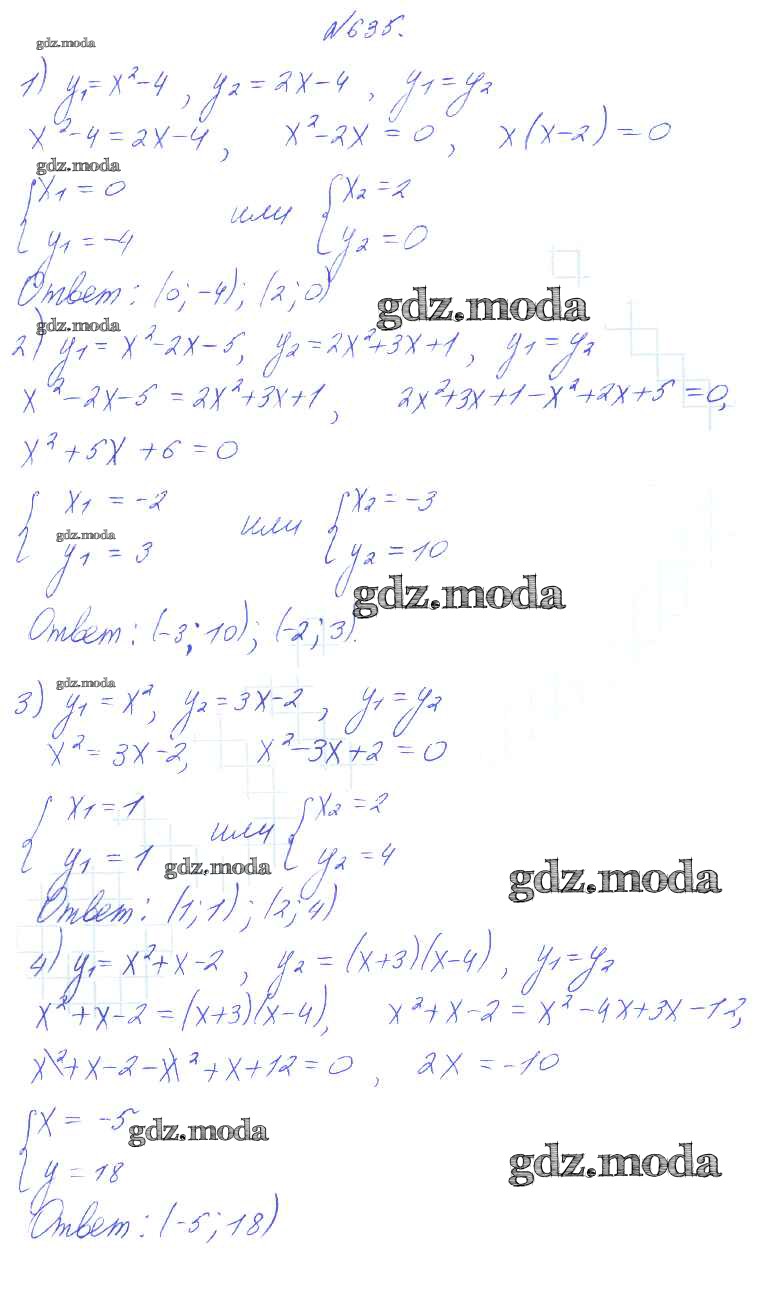 №635.
gdz.moda
1) y₁=x²-4, y₂=2x-4, y₁=y₂
x²-4=2x-4, x²-2x=0, x(x-2)=0
gdz.moda
{x₁=0 или {x₂=2
y₁=-4 y₂=0
Ответ: (0;-4); (2;0)
gdz.moda
gdz.moda
2) y₁=x²-2x-5, y₂=2x²+3x+1, y₁=y₂
x²-2x-5=2x²+3x+1, 2x²+3x+1-x²+2x+5=0,
x²+5x+6=0
{x₁=-2 или {x₂=-3
gdz.moda
y₁=3 y₂=10
gdz.moda
Ответ: (-3;10); (-2;3).
gdz.moda
3) y₁=x², y₂=3x-2, y₁=y₂
x²=3x-2, x²-3x+2=0
{x₁=1 или {x₂=2
y₁=1 gdz.moda y₂=4
gdz.moda
Ответ: (1;1); (2;4)
4) y₁=x²+x-2, y₂=(x+3)(x-4), y₁=y₂
x²+x-2=(x+3)(x-4), x²+x-2=x²-4x+3x-12,
x²+x-2-x²+x+12=0, 2x=-10
{x=-5
gdz.moda
y=18
gdz.moda
Ответ: (-5;18)